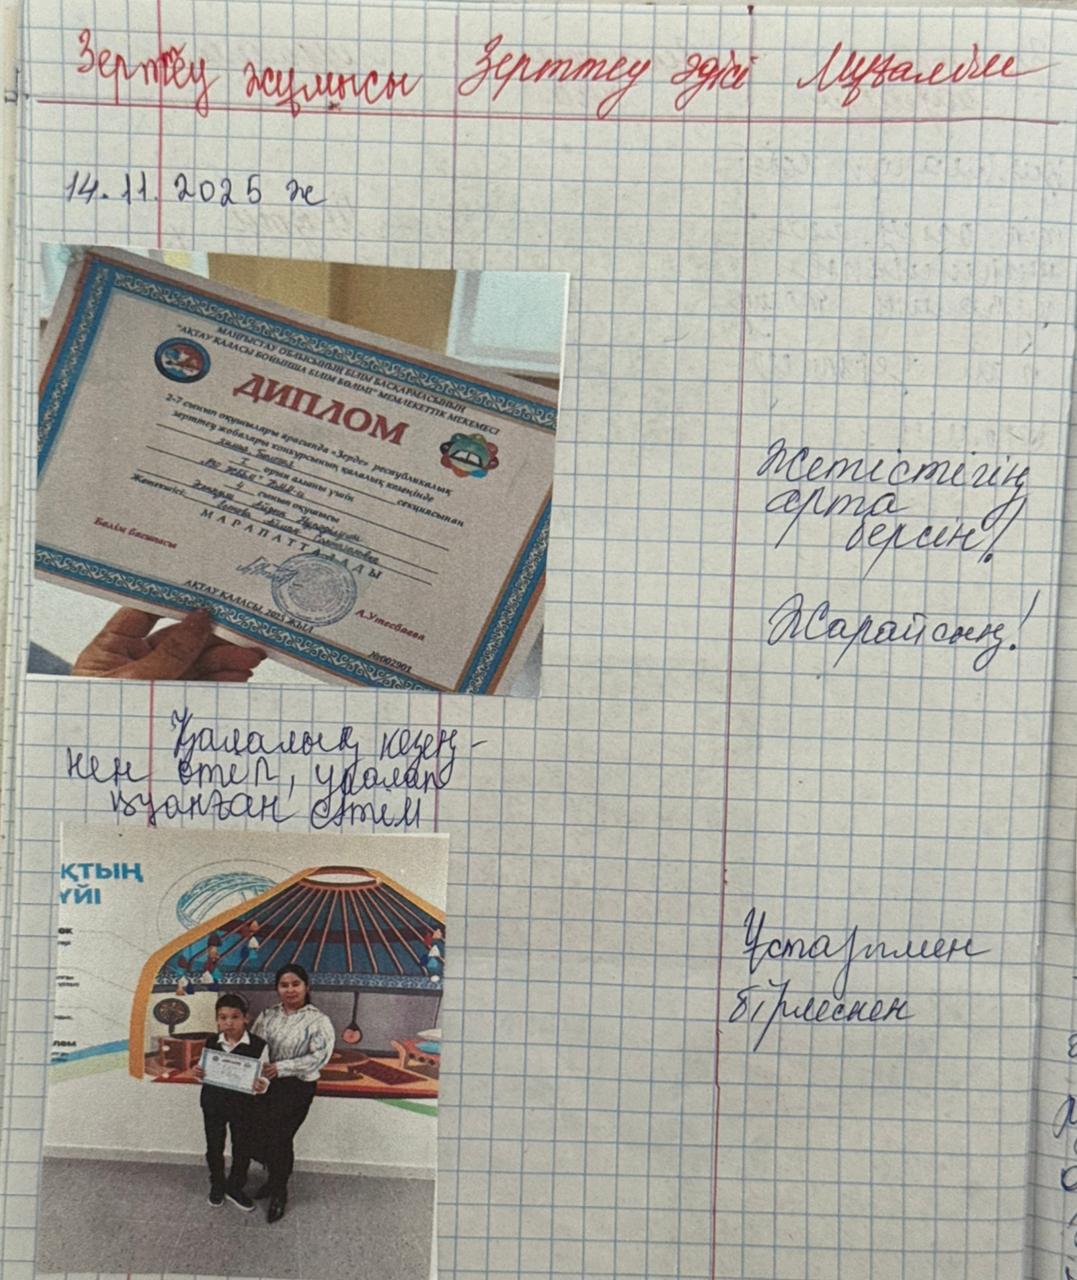 Зерттеу жұмысы Зерттеу әдісі Мұғалім
14.11.2025 ж
МАҢҒЫСТАУ ОБЛЫСЫНЫҢ БІЛІМ БАСҚАРМАСЫНЫҢ
"АҚТАУ ҚАЛАСЫ БОЙЫНША БІЛІМ БӨЛІМІ" МЕМЛЕКЕТТІК МЕКЕМЕСІ
ДИПЛОМ
2-7 сынып оқушылары арасында «Зерде» республикалық
зерттеу жобалары конкурсының қалалық кезеңінде
секциясынан
І орын алғаны үшін
4 сынып оқушысы
Жетекшісі:
МАРАПАТТАЛАДЫ
Бөлім басшысы
А.Утесбаева
АҚТАУ ҚАЛАСЫ, 2025 ЖЫЛ
№002901
Жетістігің
арта
берсін!
Жарайсың!
Қалалық кезең-
нен өтеп,
қуанған сәтем
ҚТЫҢ
ҮЙІ
Ұстазымен
бірлескен